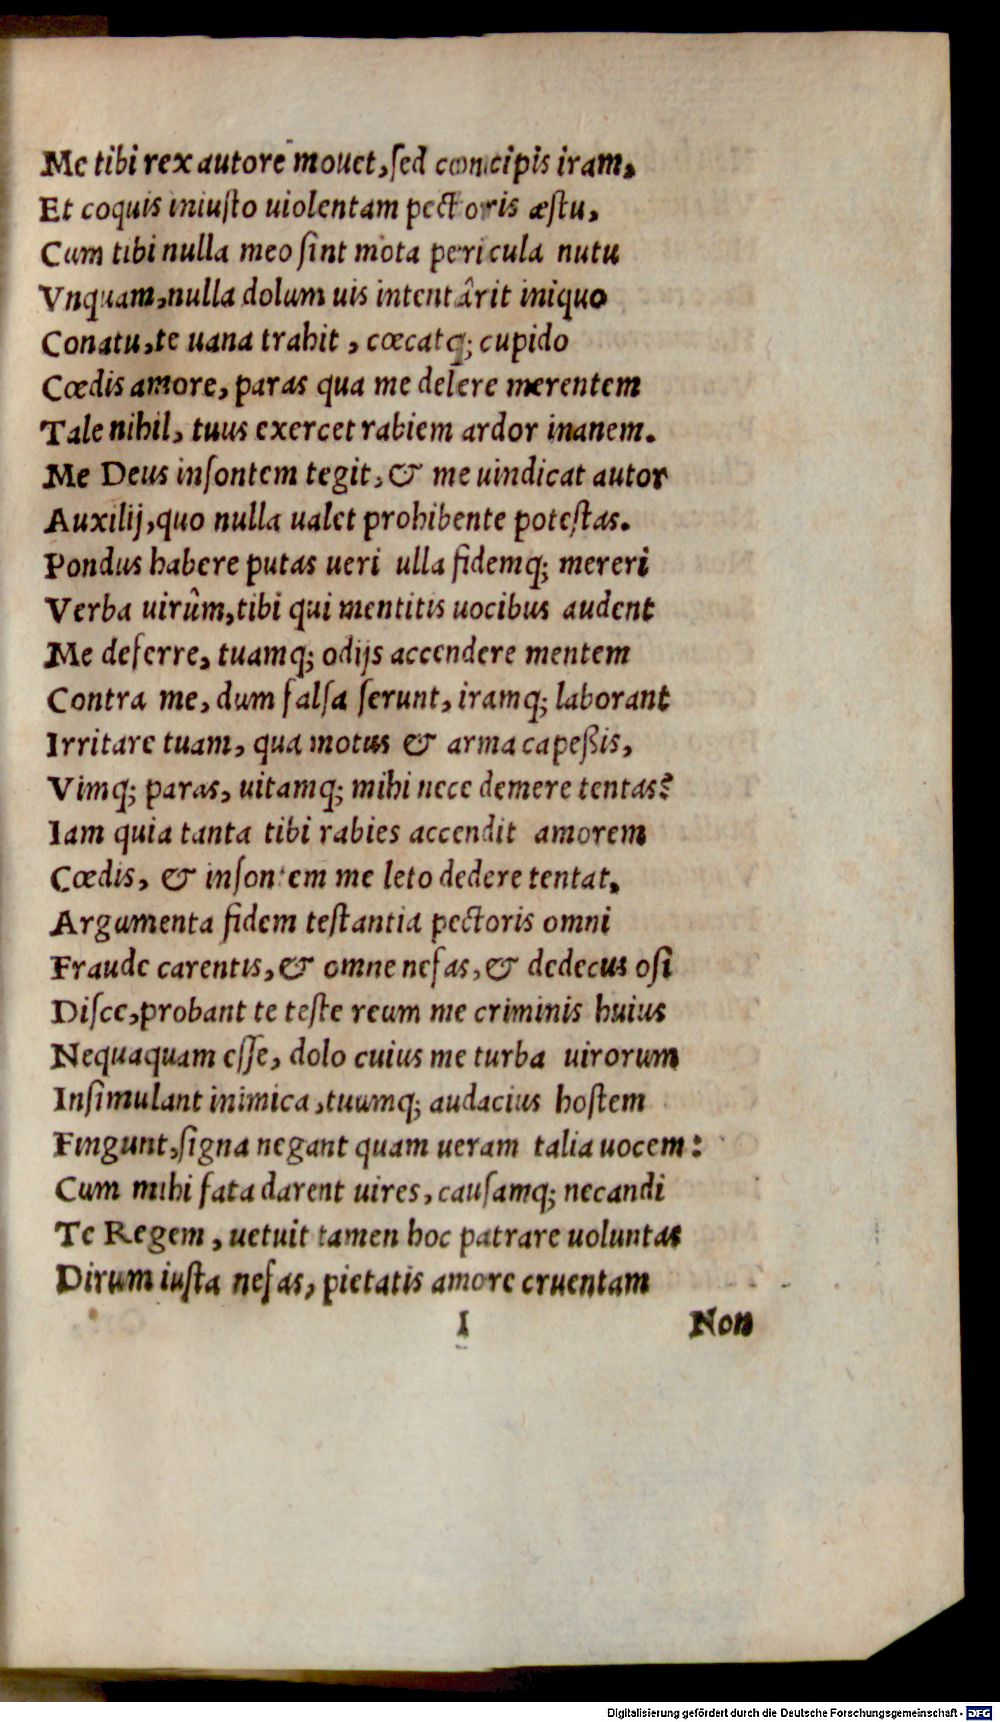 Me tibi rex autore mouet, ſed concipis iram,
Et coquis iniuſto uiolentam pectoris æſtu,
Cum tibi nulla meo ſint mota pericula nutu
Vnquam, nulla dolum uis intentârit iniquo
Conatu, te uana trahit, cœcatq; cupido
Cœdis amore, paras qua me delere merentem
Tale nihil, tuus exercet rabiem ardor inanem.
Me Deus inſontem tegit, & me uindicat autor
Auxilij, quo nulla ualet prohibente poteſtas.
Pondus habere putas ueri ulla fidemq; mereri
Verba uirûm, tibi qui mentitis uocibus audent
Me deferre, tuamq; odijs accendere mentem
Contra me, dum falſa ſerunt, iramq; laborant
Irritare tuam, qua motus & arma capeßis,
Vimq; paras, uitamq; mihi nece demere tentas?
Iam quia tanta tibi rabies accendit amorem
Cœdis, & inſontem me leto dedere tentat,
Argumenta fidem teſtantia pectoris omni
Fraude carentis, & omne nefas, & dedecus oſi
Diſce, probant te teſte reum me criminis huius
Nequaquam eſſe, dolo cuius me turba uirorum
Inſimulant inimica, tuumq; audacius hoſtem
Fingunt, ſigna negant quam ueram talia uocem:
Cum mihi fata darent uires, cauſamq; necandi
Te Regem, uetuit tamen hoc patrare uoluntas
Dirum iuſta nefas, pietatis amore cruentam
I Non
Digitalisierung gefördert durch die Deutsche Forschungsgemeinschaft - DFG